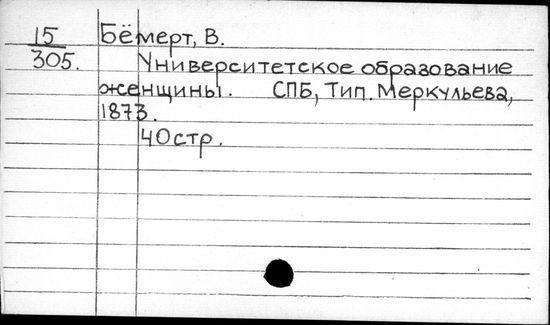 15 Бёмерт, В.
305. Университетское образование
женщины. СПБ, Тип. Меркульева,
1873.
40 стр.